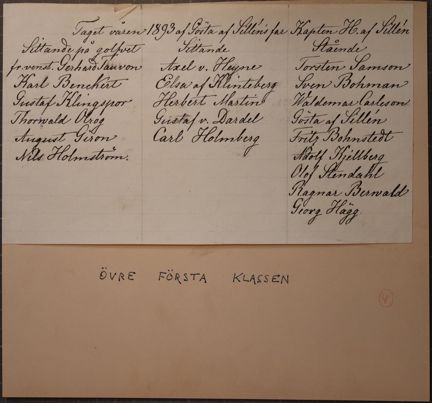 Taget våren 1893 af Gösta af Silléns far Kapten H. af Sillén
Sittande på golfvet
fr. venst. Gerhard Tauvon
Karl Benckert
Gustaf Klingspor
Thorwald Olrog
August Giron
Nils Holmström.
Sittande
Axel v. Heyne
Elsa af Klinteberg
Herbert Martin
Gustaf v. Dardel
Carl Holmberg
Stående
Torsten Samson
Sven Bohman
Waldemar Carlsson
Gösta af Sillén
Fritz Bohnstedt
Adolf Kjellberg
Olof Stendahl
Ragnar Berwald
Georg Hägg
ÖVRE FÖRSTA KLASSEN